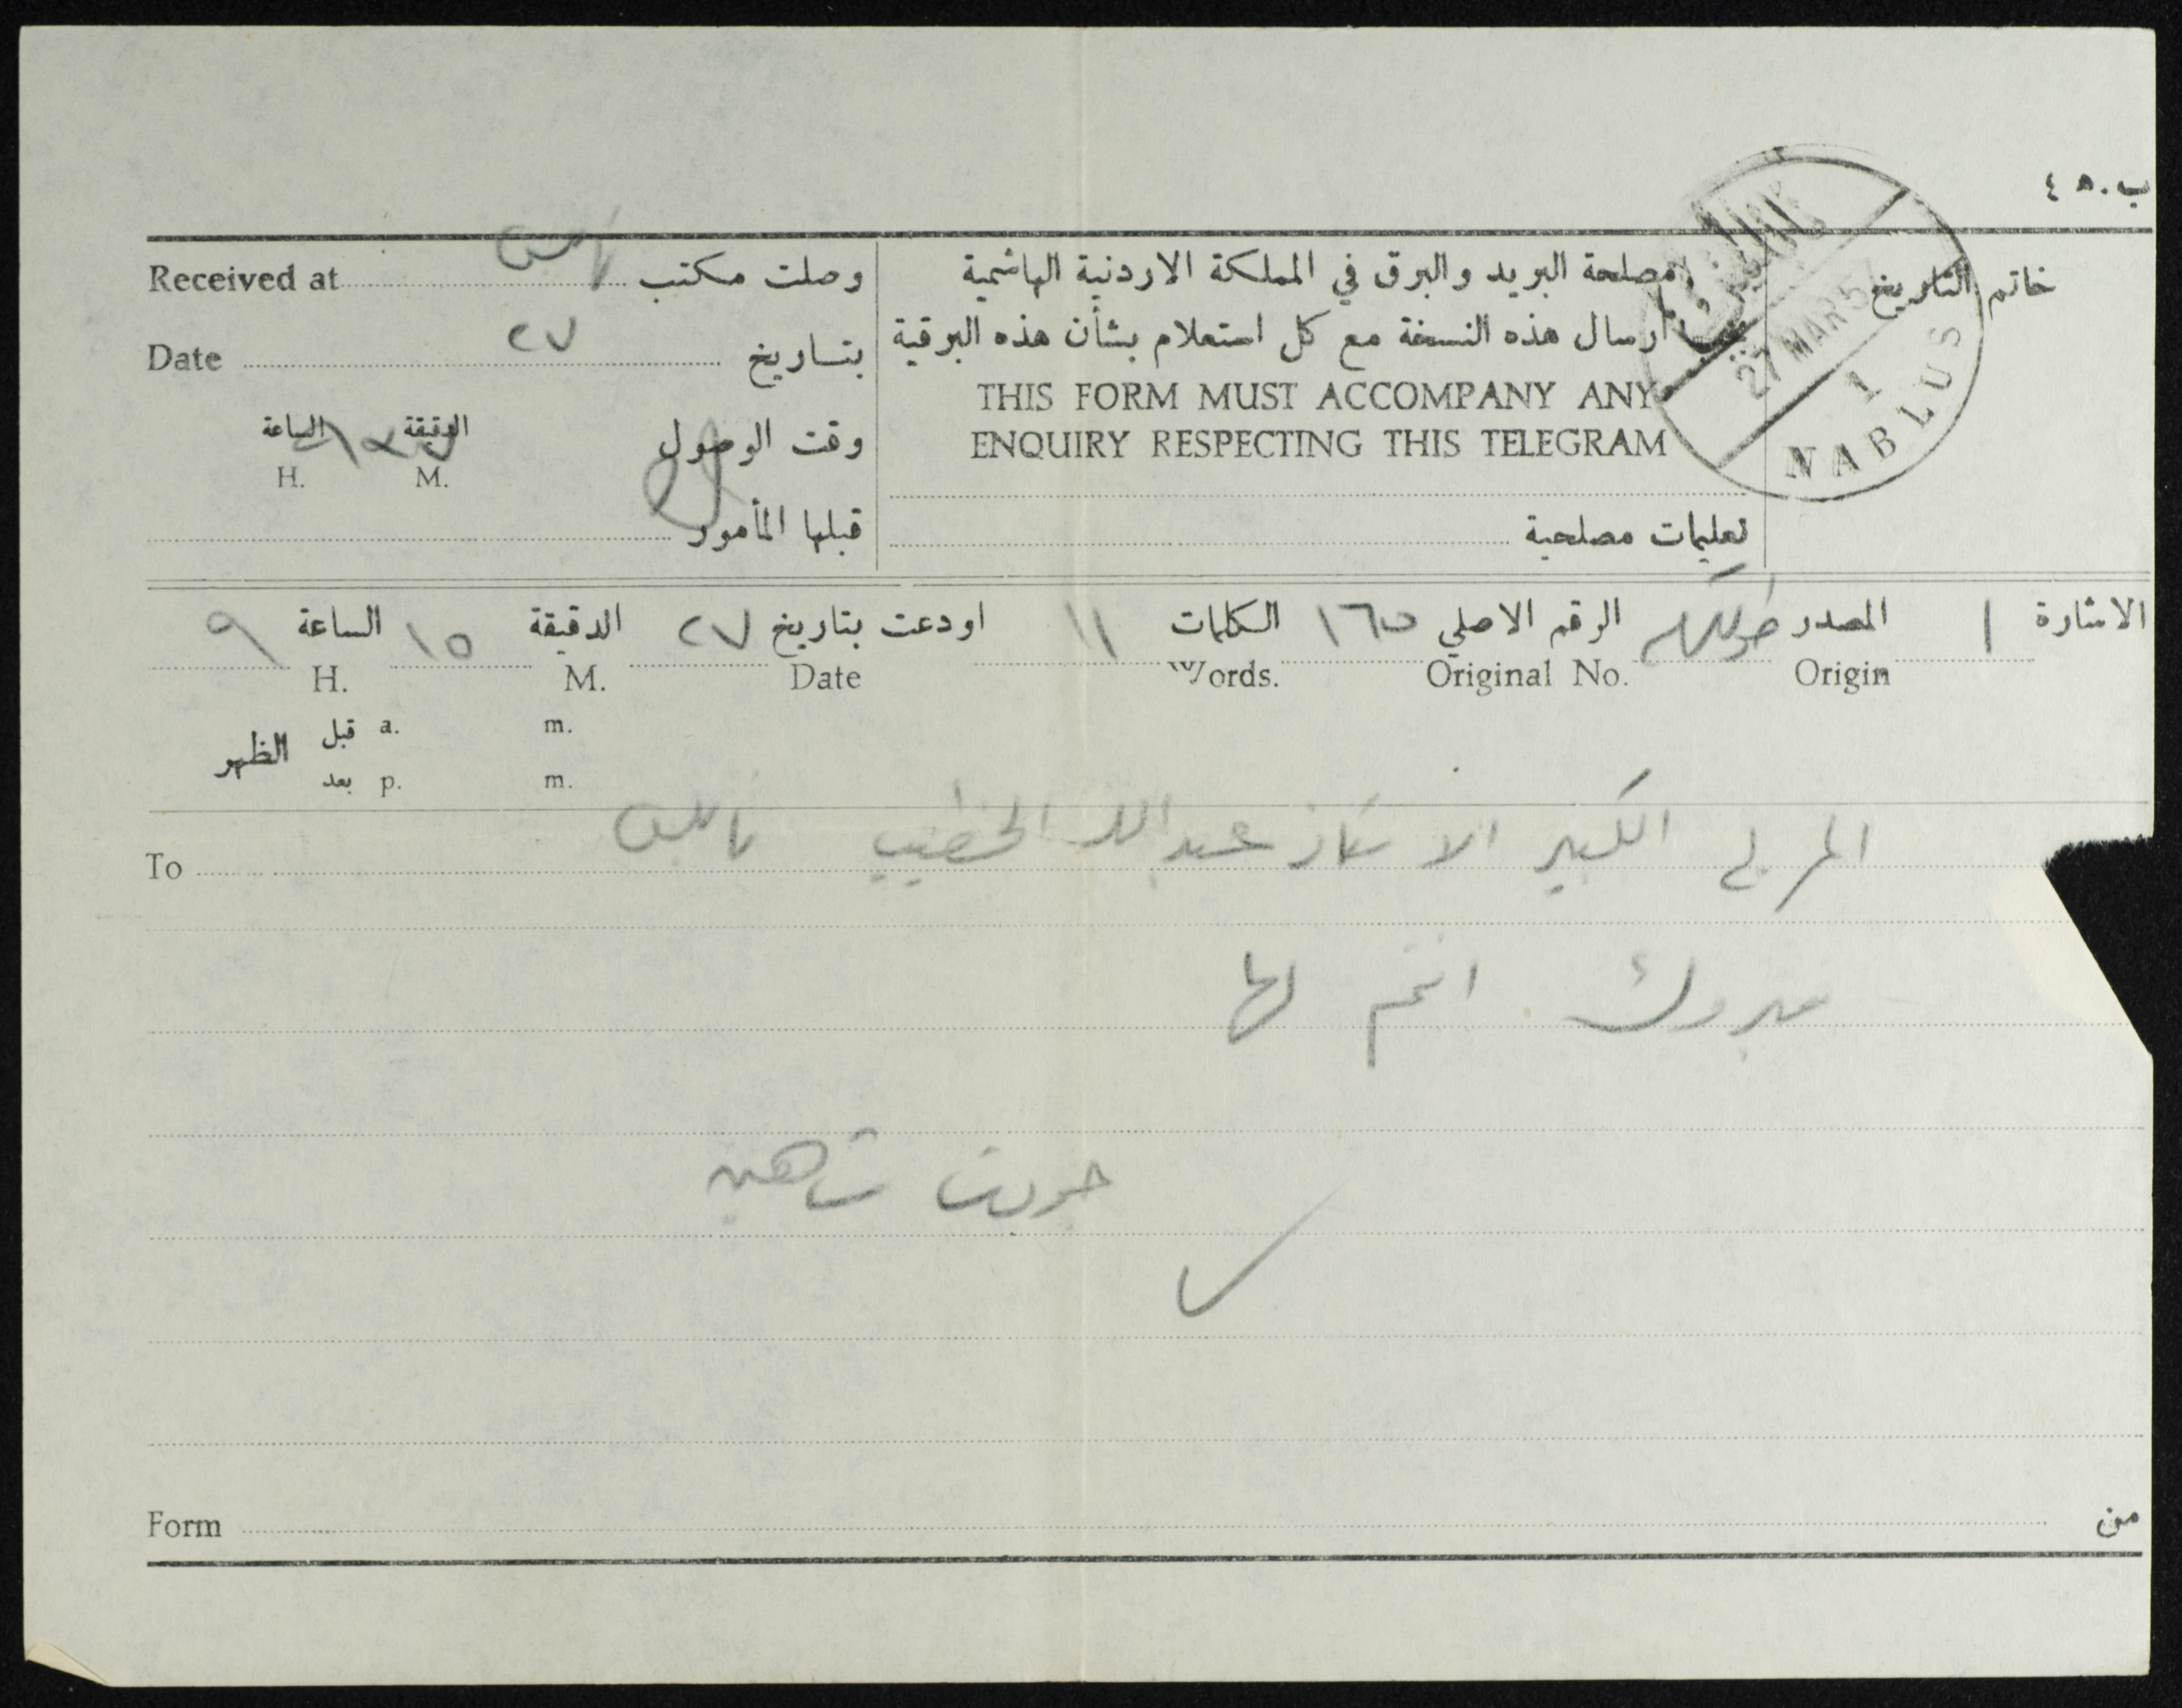 ب.٥ ٤
Received at نابلس وصلت مكتب
مصلحة البريد والبرق في المملكة الاردنية الهاشمية
خاتم التاريخ
Date ٢٧ بتاريخ
ارسال هذه النسخة مع كل استعلام بشأن هذه البرقية
THIS FORM MUST ACCOMPANY ANY
ENQUIRY RESPECTING THIS TELEGRAM
27 MAR 5
1
NABLUS
وقت الوصول الدقيقة الساعة
H. M.
قبلها المأمور
تعليمات مصلحية
الاشارة ١ المصدر طولكرم الرقم الاصلي ١٦٥ الكلمات ١١ اودعت بتاريخ ٢٧ الدقيقة ١٥ الساعة ٩
H. M. Date Words. Original No. Origin
قبل a. m.
الظهر
بعد p. m.
To المربي الكبير الاستاذ عبدالله الخطيب نابلس
مبروك انتم لها
شاهين
Form من